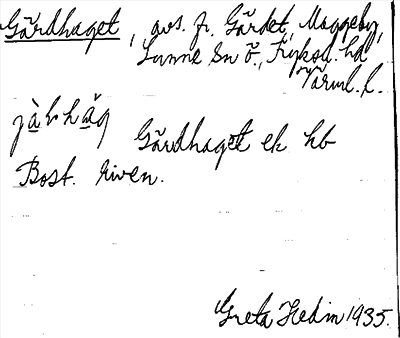 Gårdhaget, avs. fr. Gärdet, Maggeby,
Sunne Sn Ö., Fryksd. hd
Värml. l.
Gårdhaget ek hb
Bost. riven.
Greta Hedin 1935.